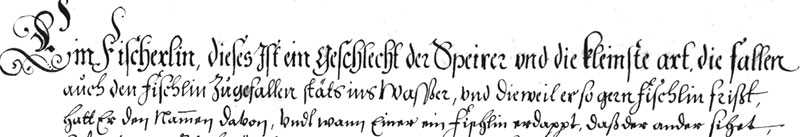 Ein Fischerlin, dieses Ist ein Geschlecht der Speirer vnd die kleinste art, die fallen
auch den Fischlin Zugefallen stäts ins Wasser, vnd dieweil er so gern Fischlin frist,
hatt Er den Nammen davon, Vndt wann Einer ein Fischlin erdappt, daß der ander sihet,